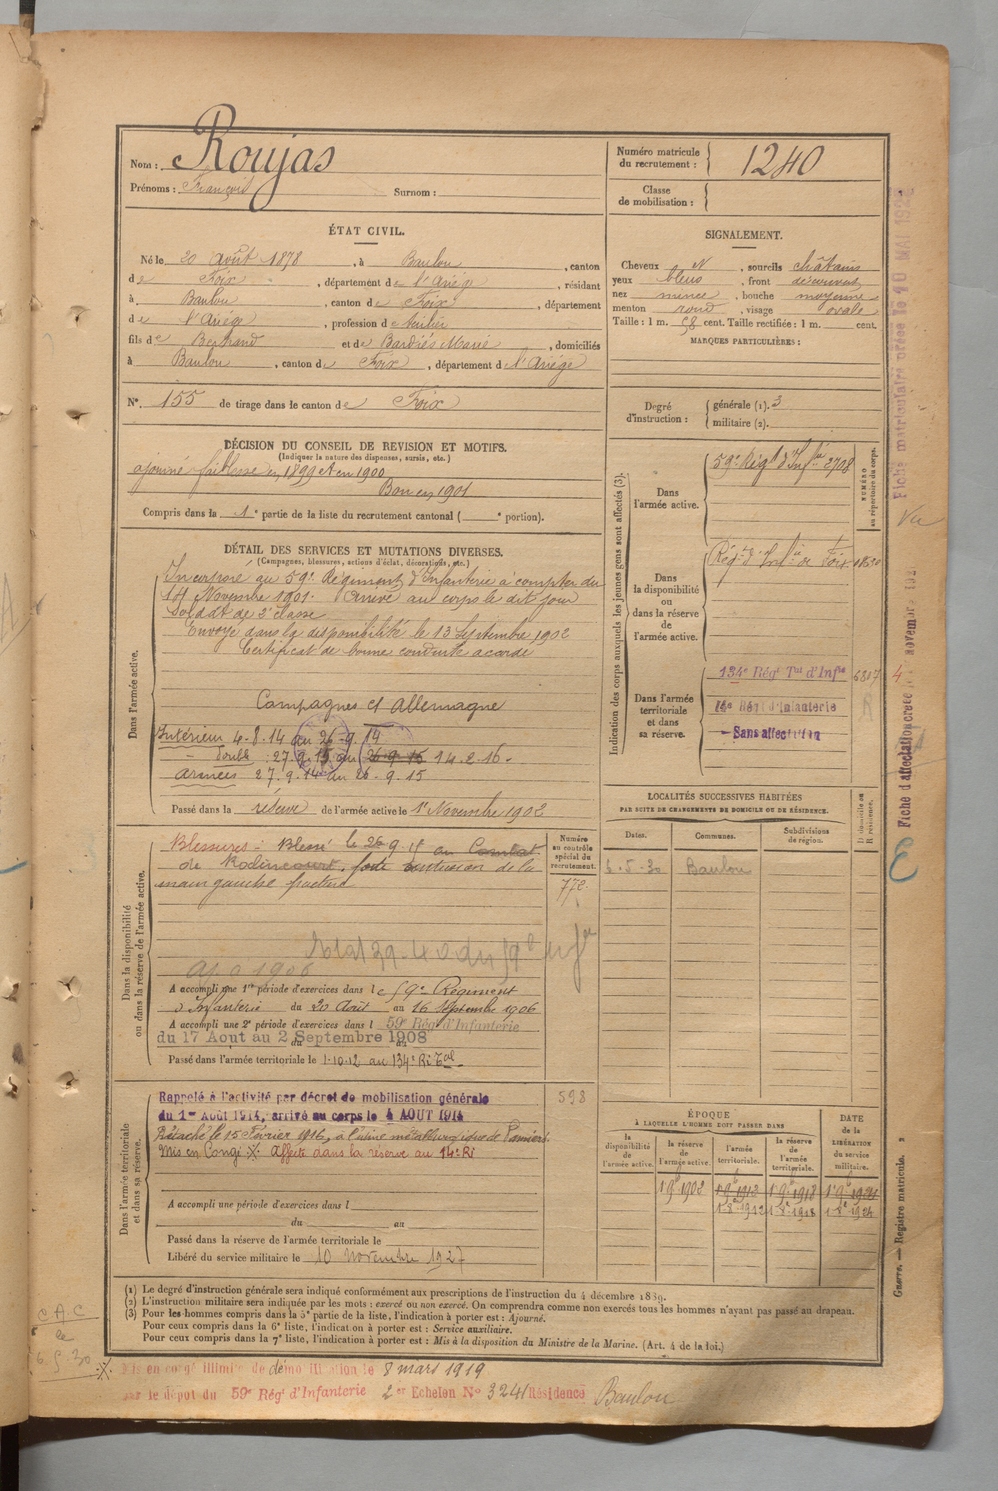 Nom : Roujas
Prénoms : François Surnom :
Numéro matricule du recrutement : 1240
Classe de mobilisation :
ÉTAT CIVIL.
Né le 20 Août 1878, à Baulou, canton
de Foix, département de l'Ariège, résidant
à Baulou, canton de Foix, département
de l'Ariège, profession de
fils de Bertrand et de Bardiés Marie, domiciliés
à Baulou, canton de Foix, département d l'Ariège
N°. 155 de tirage dans le canton de Foix
SIGNALEMENT.
Cheveux N, sourcils châtains
yeux bleus, front découvert
nez mince, bouche moyenne
menton rond, visage ovale
Taille : 1 m. 58 cent. Taille rectifiée : 1 m. cent.
MARQUES PARTICULIÈRES :
Degré d'instruction : générale (1). 3
militaire (2).
DÉCISION DU CONSEIL DE REVISION ET MOTIFS.
(Indiquer la nature des dispenses, sursis, etc.)
ajourné faiblesse en 1899 et en 1900
Bon en 1901
Compris dans la 1e partie de la liste du recrutement cantonal ( e portion).
DÉTAIL DES SERVICES ET MUTATIONS DIVERSES.
(Campagnes, blessures, actions d'éclat, décorations, etc.)
Dans l'armée active.
Incorporé au 59e Régiment d'Infanterie à compter du
14 Novembre 1901. Arrivé au corps le dit jour
Soldat de 2e classe
Envoyé dans la disponibilité le 13 Septembre 1902
Certificat de bonne conduite accordé
Campagnes et Allemagne
Intérieur 4-8-14 au 26-9-14
- Double : 27.9.15 au 26-9-15 14-2-16.
armées 27.9.14 au 26.9.15
Passé dans la réserve de l'armée active le 1er Novembre 1902
Dans la disponibilité ou dans la réserve de l'armée active.
Blessures - Blessé le 28 9 15 au Combat
de Rodincourt, forte contusion de la
main gauche fracture
Numéro au contrôle spécial du recrutement.
772.
A accompli une 1re période d'exercices dans le 59e Régiment
d'Infanterie du 20 Août au 16 Septembre 1906
A accompli une 2e période d'exercices dans l 59e Rég d'Infanterie
du 17 Aout au 2 Septembre 1908
Passé dans l'armée territoriale le 1-10-12 au 134e Ri Tal
Dans l'armée territoriale et dans sa réserve.
Rappelé à l'activité par décret de mobilisation générale
du 1er Août 1914, arrivé au corps le 4 AOUT 1914
598
Détaché le 15 Février 1916, à l'usine métallurgique de Pamiers.
Mis en Congé Affecté dans la réserve au 14e Ri
A accompli une période d'exercices dans l
du au
Passé dans la réserve de l'armée territoriale le
Libéré du service militaire le 10 novembre 1927
Indication des corps auxquels les jeunes gens sont affectés (3).
NUMÉRO au répertoire du corps.
Dans l'armée active.
59e Régt d'Infie 2708
Dans la disponibilité ou dans la réserve de l'armée active.
Régt d'Infie de Foix
Dans l'armée territoriale et dans sa réserve.
134e Régt Tal d'Infie 6817
14e Régt d'Infanterie
Sans affectation
LOCALITÉS SUCCESSIVES HABITÉES
PAR SUITE DE CHANGEMENTS DE DOMICILE OU DE RÉSIDENCE.
D domicile ou R résidence.
Dates. Communes. Subdivisions de région.
6-5-30 Baulou
ÉPOQUE
À LAQUELLE L'HOMME DOIT PASSER DANS
la disponibilité de l'armée active. la réserve de l'armée active. l'armée territoriale. la réserve de l'armée territoriale. DATE de la LIBÉRATION du service militaire.
1 9e 1902 1 9e 1912 1 9e 1918 1 9e 1924
1-8e 1912 1-8e 1918 1-8e 1924
(1) Le degré d'instruction générale sera indiqué conformément aux prescriptions de l'instruction du 4 décembre 1889.
(2) L'instruction militaire sera indiquée par les mots : exercé ou non exercé. On comprendra comme non exercés tous les hommes n'ayant pas passé au drapeau.
(3) Pour les hommes compris dans la 5e partie de la liste, l'indication à porter est : Ajourné.
Pour ceux compris dans la 6e liste, l'indication à porter est : Service auxiliaire.
Pour ceux compris dans la 7e liste, l'indication à porter est : Mis à la disposition du Ministre de la Marine. (Art. 4 de la loi.)
Mis en congé illimité de démobilisation le 8 mars 1919
par le dépôt du 59e Régt d'Infanterie 2er Echelon No 3241 Résidence Baulou
C A C
le
6.5.30
Fiche matriculaire créée le 10 MAI 192
Vu
Guerre. — Registre matricule. 2